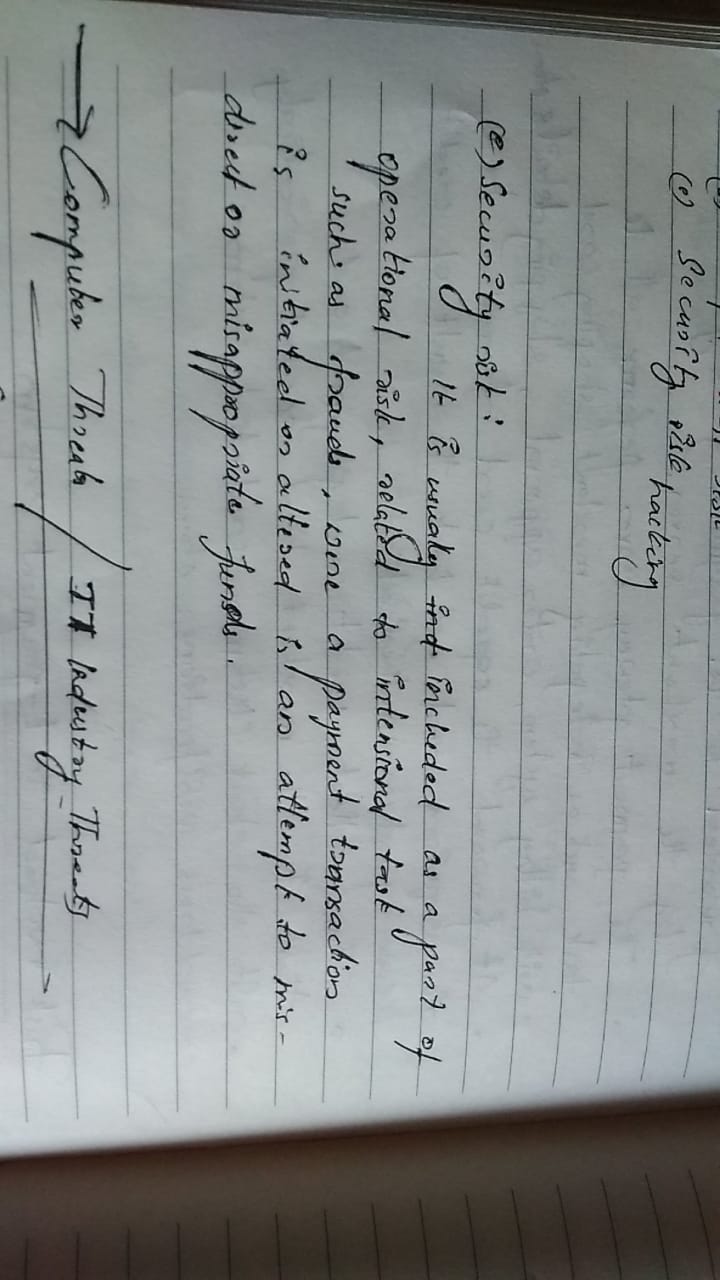 (e) Security risk
hacking
(e) Security risk :
It is usually ind included as a part of
operational risk, related to intensional task
such as frauds, were a payment transaction
is initiated or altered is an attempt to mis-
direct or misappropriate funds.
→ Computer Threats / IT Industry Threats